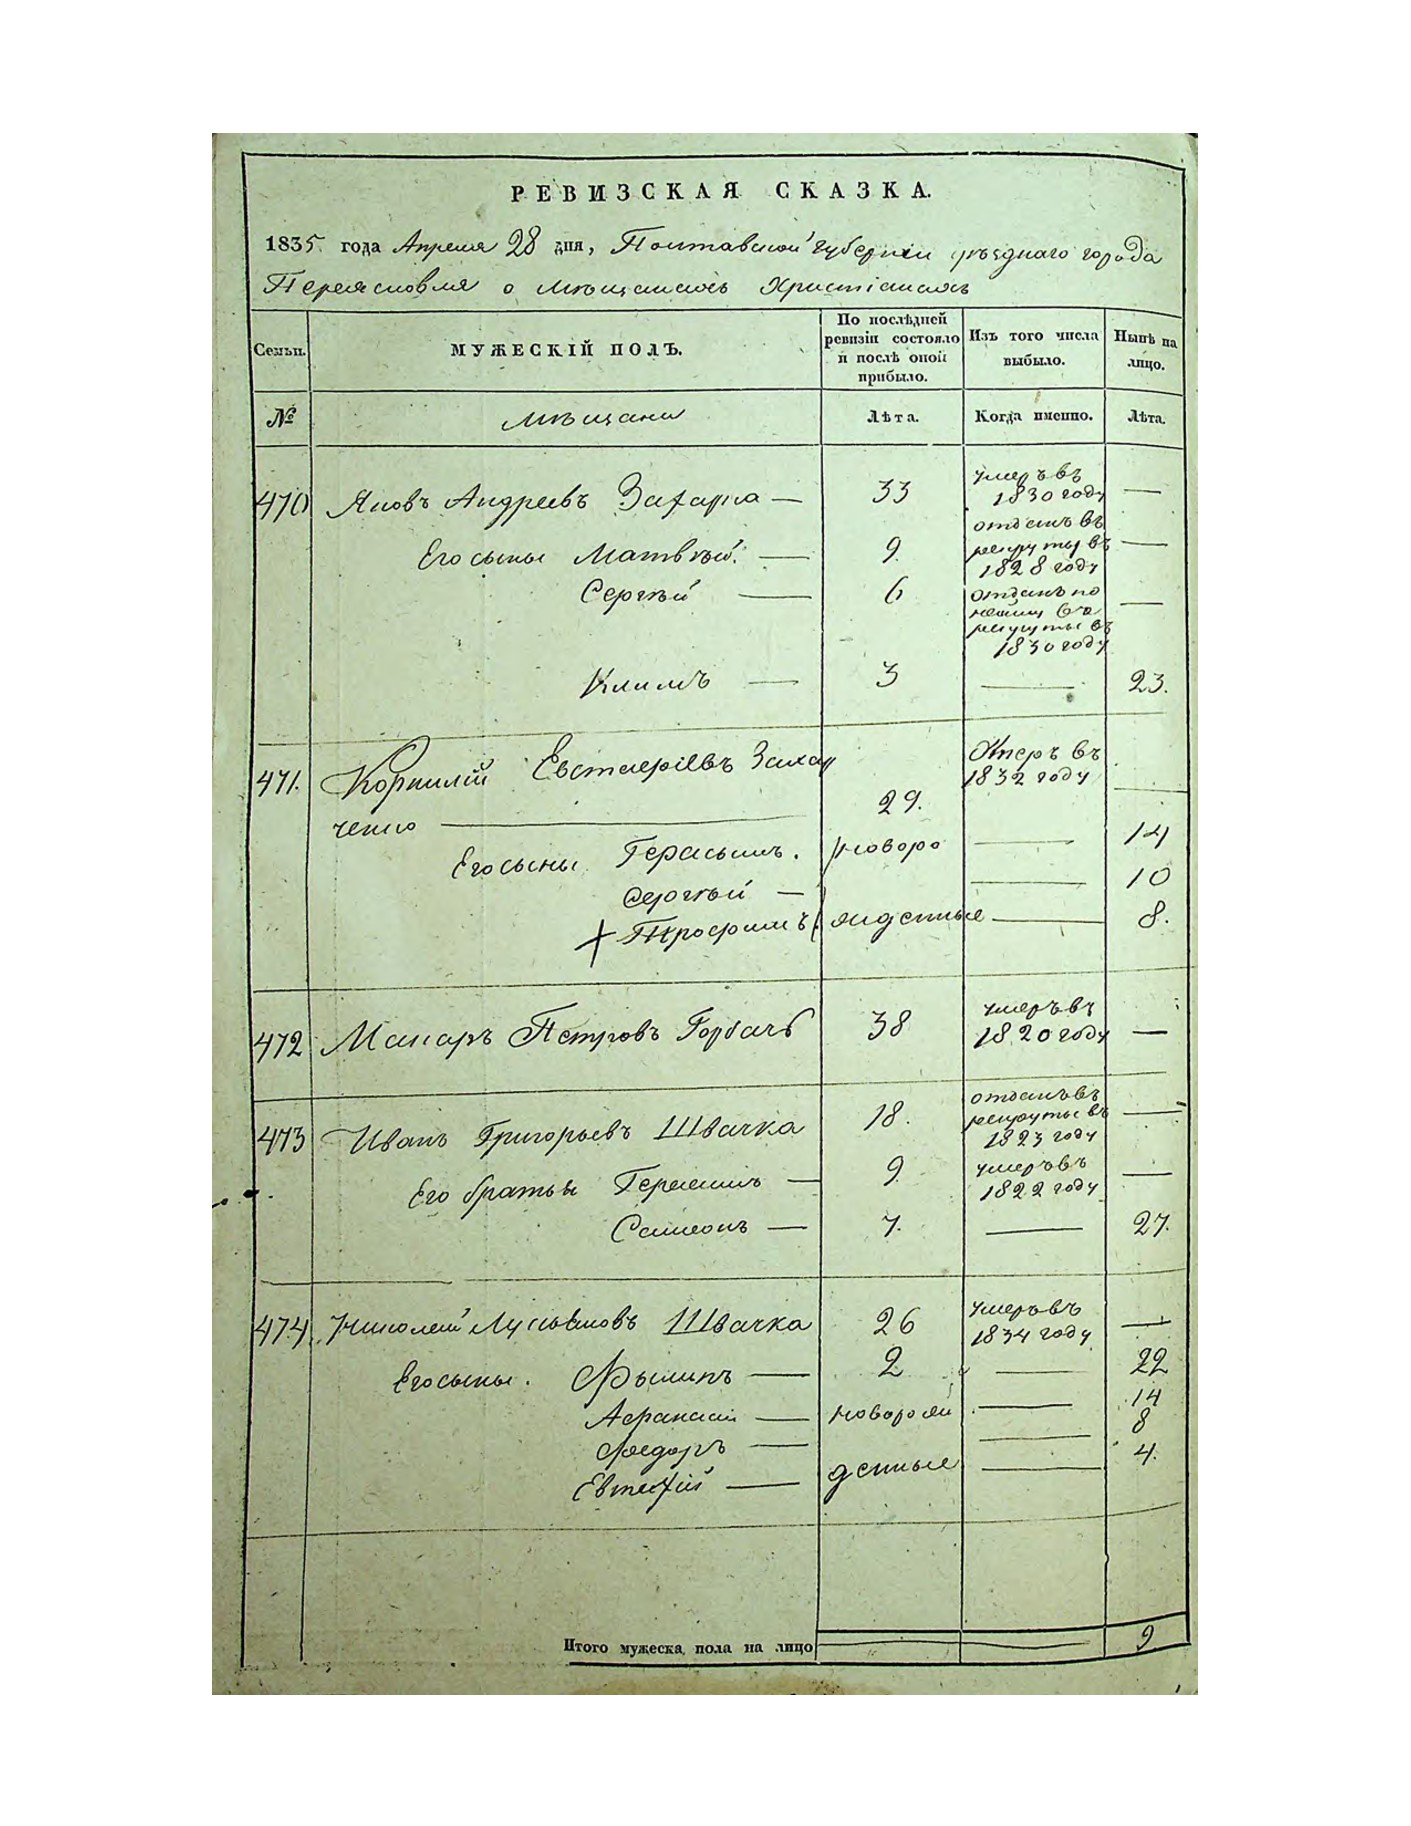 РЕВИЗСКАЯ СКАЗКА.
1835 года Апреля 28 дня, Полтавской губернiи уѣзднаго города
Переяславля о мѣщанахъ Христiанахъ
Семьи. МУЖЕСКIЙ ПОЛЪ. По послѣдней ревизiи состояло и послѣ оной прибыло. Изъ того числа выбыло. Нынѣ на лицо.
№ мѣщане Лѣта. Когда именно. Лѣта.
470 Яковъ Андреевъ — 33 умеръ въ 1830 году —
Его сыны Матвѣй — 9. отданъ въ рекруты въ 1828 году —
Сергѣй — 6 отданъ въ рекруты въ 1830 году —
Климъ — 3 — 23.
471. Корнилiй Евстафiевъ Захар 29. Умеръ въ 1832 году —
ченко —
Его сыны Герасимъ. новоро — 14
Сергѣй — — 10
+ Трофимъ жденные — 8.
472 Макаръ Петровъ Горбачъ 38 умеръ въ 1820 году —
473 Иванъ Григорьевъ Швачка 18. отданъ въ рекруты въ 1823 году —
Его братья — 9 умеръ въ 1822 году —
Симеонъ — 7. — 27.
474. Швачка 26 умеръ въ 1834 году —
Его сыны. Филипъ — 2 — 22
Афанасiй — новорож — 14
Федоръ — — 8
Евтихiй — денные — 4.
Итого мужеска пола на лицо 9